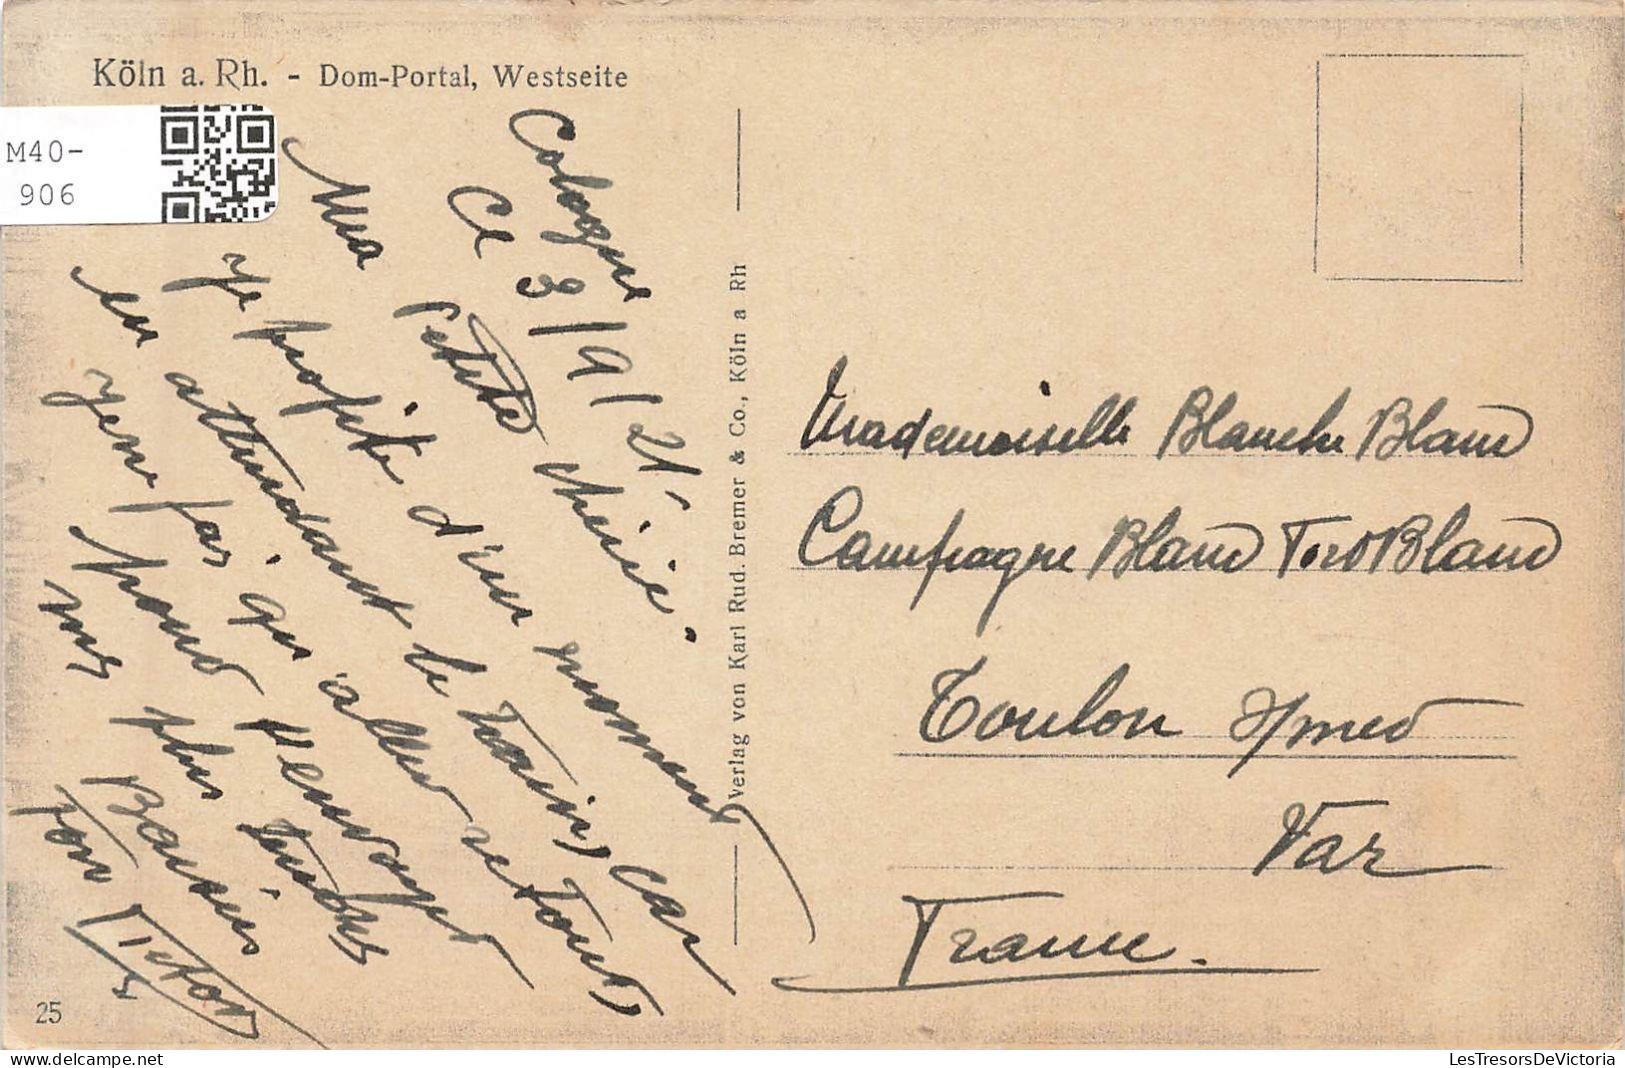 Köln a. Rh. - Dom-Portal, Westseite
M40-
906
Cologne
Ce 3/9/21
Ma Petite chérie.
Je profite d'un moment
en attendant le train, car
par qui aller retour,
pour t'envoyer
mes plus tendres
Baisers
Ton Victor
Verlag von Karl Rud. Bremer & Co., Köln a Rh
25
Mademoiselle Blanche Blanc
Campagne Blanc Fort Blanc
Toulon
Var
France.
LesTresorsDeVictoria
delcampe.net